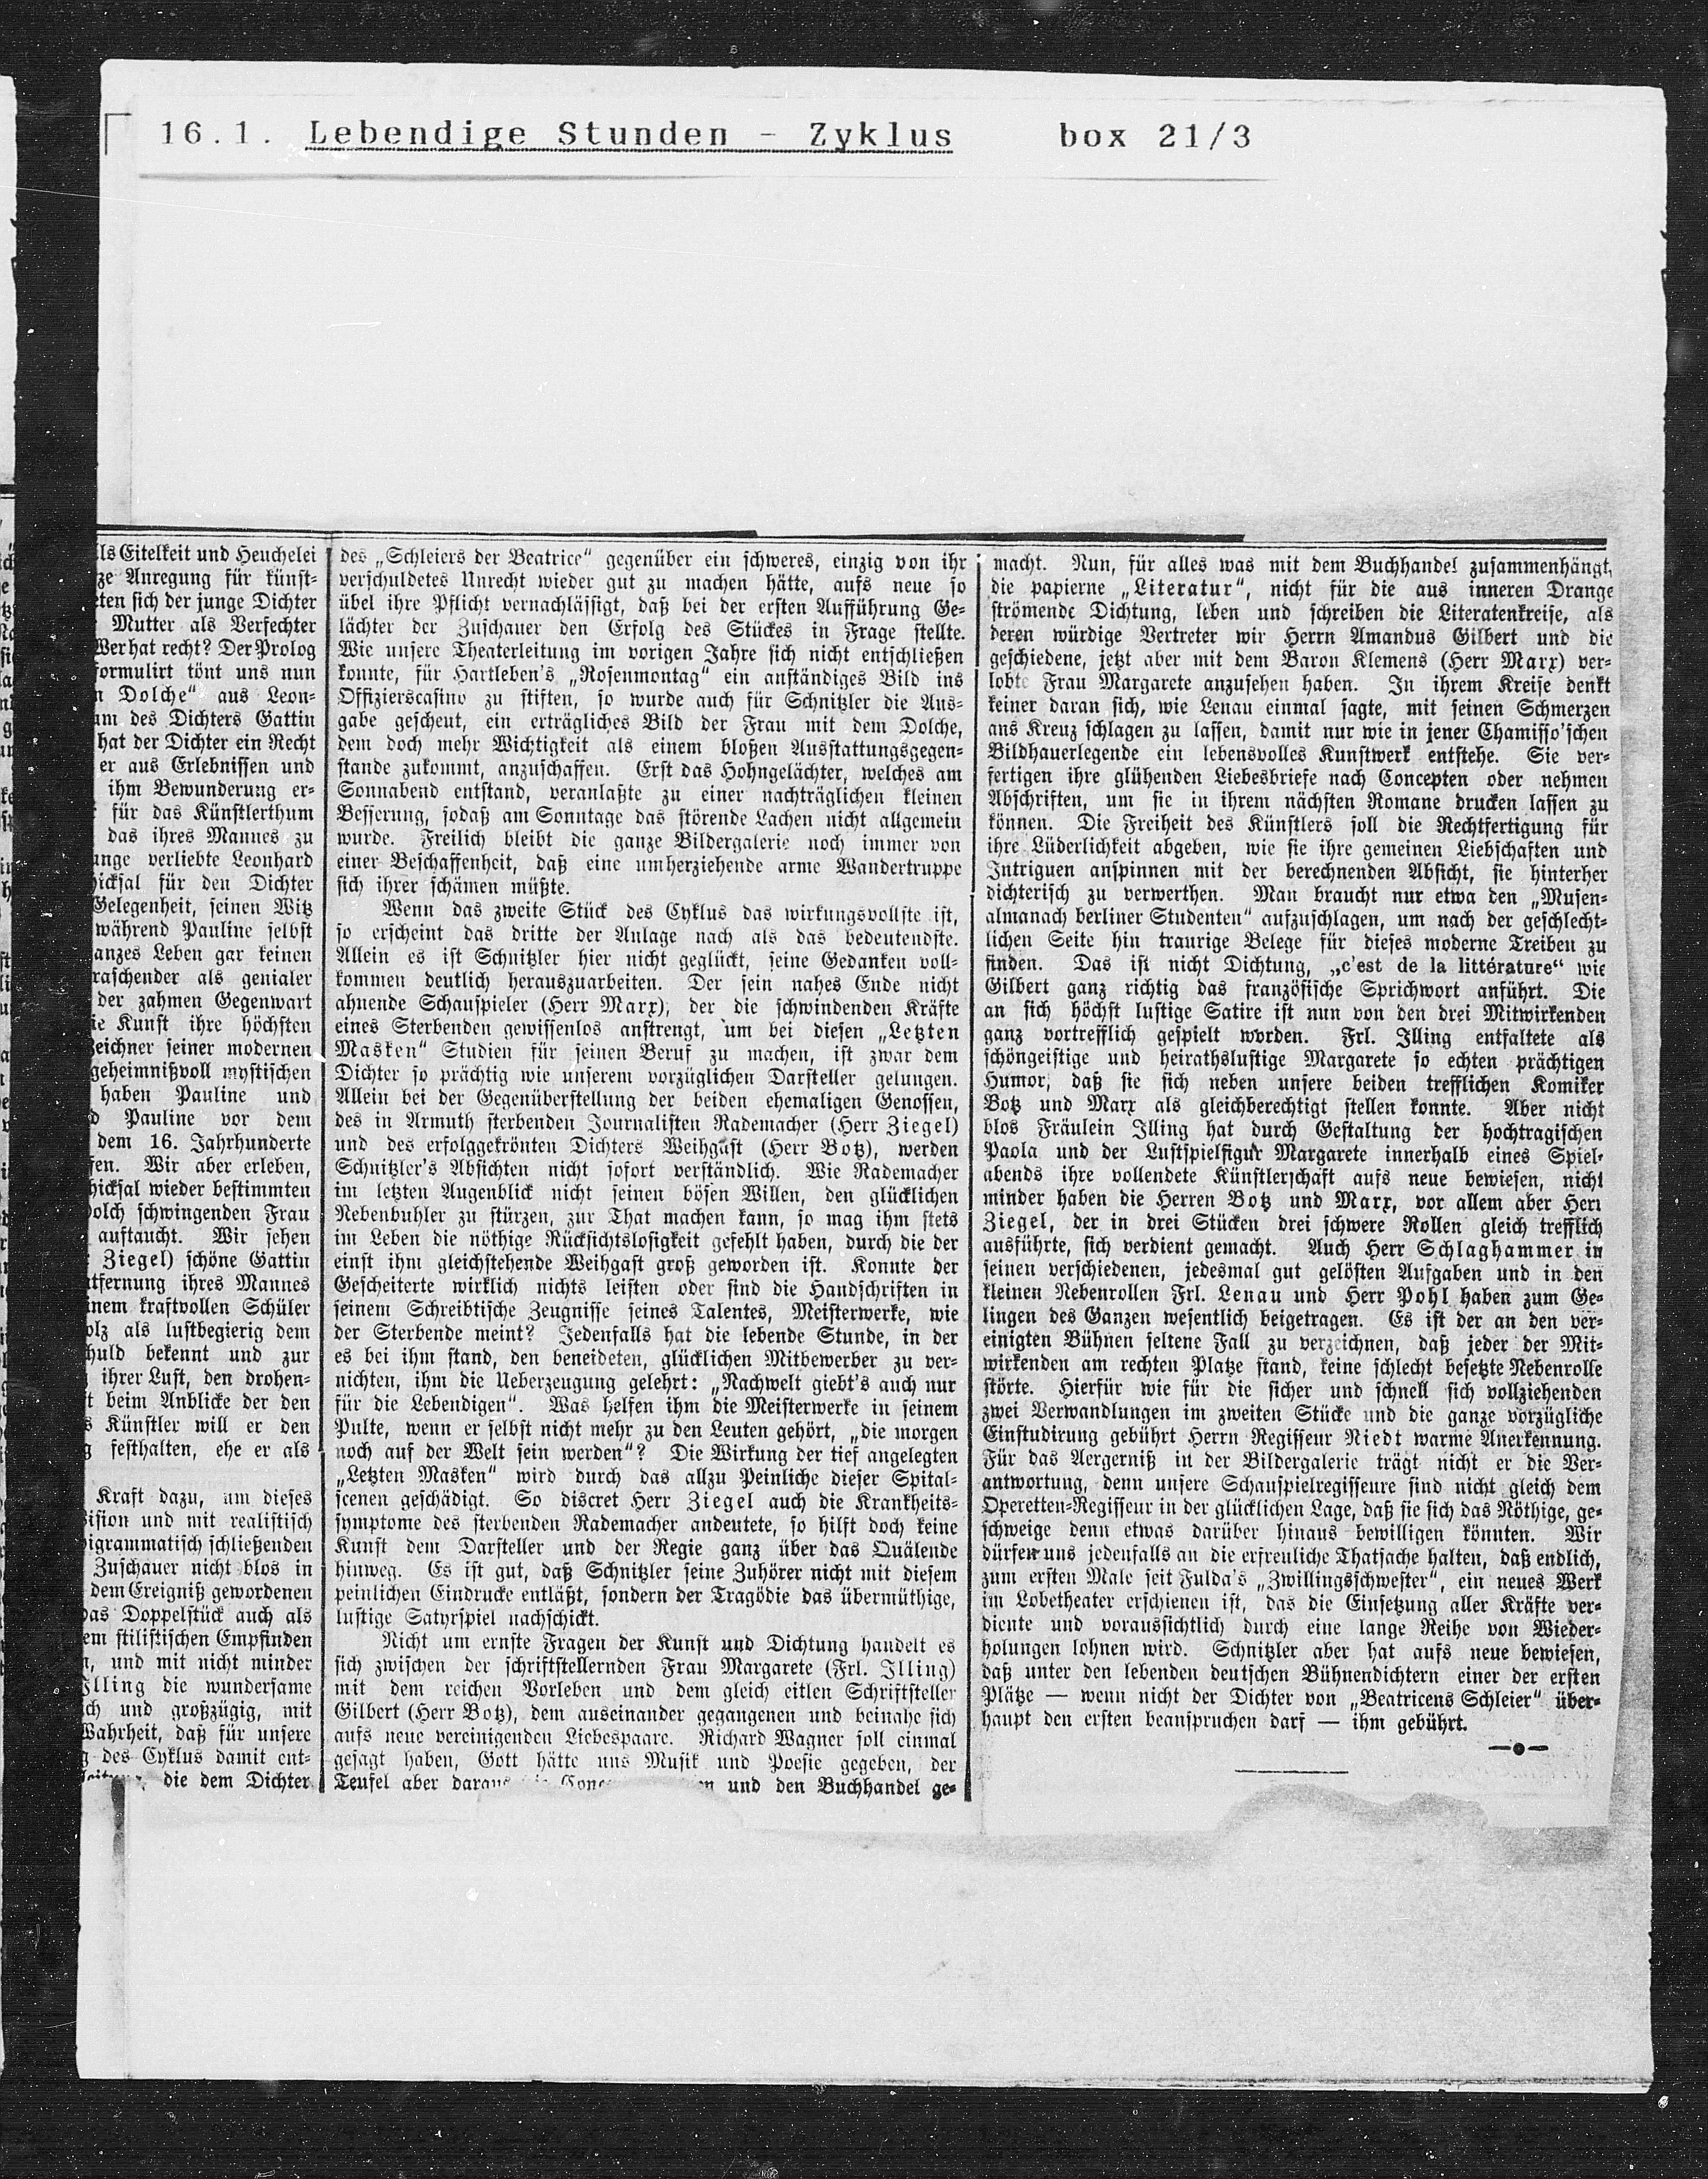 16.1. Lebendige Stunden - Zyklus box 21/3
ls Eitelkeit und Heuchelei
ze Anregung für künst-
eten sich der junge Dichter
Mutter als Verfechter
Wer hat recht? Der Prolog
formulirt tönt uns nun
n Dolche“ aus Leon-
um des Dichters Gattin
hat der Dichter ein Recht
er aus Erlebnissen und
ihm Bewunderung er-
für das Künstlerthum
das ihres Mannes zu
unge verliebte Leonhard
hicksal für den Dichter
Gelegenheit, seinen Witz
während Pauline selbst
anzes Leben gar keinen
raschender als genialer
der zahmen Gegenwart
ie Kunst ihre höchsten
Zeichner seiner modernen
geheimnißvoll mystischen
haben Pauline und
d Pauline vor dem
dem 16. Jahrhunderte
fen. Wir aber erleben,
hicksal wieder bestimmten
Dolch schwingenden Frau
auftaucht. Wir sehen
Ziegel) schöne Gattin
ntfernung ihres Mannes
inem kraftvollen Schüler
olz als lustbegierig dem
huld bekennt und zur
ihrer Lust, den drohen-
t beim Anblicke der den
s Künstler will er den
g festhalten, ehe er als
Kraft dazu, um dieses
Vision und mit realistisch
pigrammatisch schließenden
Zuschauer nicht blos in
dem Ereigniß gewordenen
das Doppelstück auch als
em stilistischen Empfinden
n, und mit nicht minder
Illing die wundersame
ch und großzügig, mit
Wahrheit, daß für unsere
g des Cyklus damit ent-
die dem Dichter
des „Schleiers der Beatrice“ gegenüber ein schweres, einzig von ihr
verschuldetes Unrecht wieder gut zu machen hätte, aufs neue so
übel ihre Pflicht vernachlässigt, daß bei der ersten Aufführung Ge-
lächter der Zuschauer den Erfolg des Stückes in Frage stellte.
Wie unsere Theaterleitung im vorigen Jahre sich nicht entschließen
konnte, für Hartleben's „Rosenmontag“ ein anständiges Bild ins
Offizierscasino zu stiften, so wurde auch für Schnitzler die Aus-
gabe gescheut, ein erträgliches Bild der Frau mit dem Dolche,
dem doch mehr Wichtigkeit als einem bloßen Ausstattungsgegen-
stande zukommt, anzuschaffen. Erst das Hohngelächter, welches am
Sonnabend entstand, veranlaßte zu einer nachträglichen kleinen
Besserung, sodaß am Sonntage das störende Lachen nicht allgemein
wurde. Freilich bleibt die ganze Bildergalerie noch immer von
einer Beschaffenheit, daß eine umherziehende arme Wandertruppe
sich ihrer schämen müßte.
Wenn das zweite Stück des Cyklus das wirkungsvollste ist,
so erscheint das dritte der Anlage nach als das bedeutendste.
Allein es ist Schnitzler hier nicht geglückt, seine Gedanken voll-
kommen deutlich herauszuarbeiten. Der sein nahes Ende nicht
ahnende Schauspieler (Herr Marx), der die schwindenden Kräfte
eines Sterbenden gewissenlos anstrengt, um bei diesen „Letzten
Masken“ Studien für seinen Beruf zu machen, ist zwar dem
Dichter so prächtig wie unserem vorzüglichen Darsteller gelungen.
Allein bei der Gegenüberstellung der beiden ehemaligen Genossen,
des in Armuth sterbenden Journalisten Rademacher (Herr Ziegel)
und des erfolggekrönten Dichters Weihgast (Herr Botz), werden
Schnitzler's Absichten nicht sofort verständlich. Wie Rademacher
im letzten Augenblick nicht seinen bösen Willen, den glücklichen
Nebenbuhler zu stürzen, zur That machen kann, so mag ihm stets
im Leben die nöthige Rücksichtslosigkeit gefehlt haben, durch die der
einst ihm gleichstehende Weihgast groß geworden ist. Konnte der
Gescheiterte wirklich nichts leisten oder sind die Handschriften in
seinem Schreibtische Zeugnisse seines Talentes, Meisterwerke, wie
der Sterbende meint? Jedenfalls hat die lebende Stunde, in der
es bei ihm stand, den beneideten, glücklichen Mitbewerber zu ver-
nichten, ihm die Ueberzeugung gelehrt: „Nachwelt giebt's auch nur
für die Lebendigen“. Was helfen ihm die Meisterwerke in seinem
Pulte, wenn er selbst nicht mehr zu den Leuten gehört, „die morgen
noch auf der Welt sein werden“? Die Wirkung der tief angelegten
„Letzten Masken“ wird durch das allzu Peinliche dieser Spital-
scenen geschädigt. So discret Herr Ziegel auch die Krankheits-
symptome des sterbenden Rademacher andeutete, so hilft doch keine
Kunst dem Darsteller und der Regie ganz über das Quälende
hinweg. Es ist gut, daß Schnitzler seine Zuhörer nicht mit diesem
peinlichen Eindrucke entläßt, sondern der Tragödie das übermüthige,
lustige Satyrspiel nachschickt.
Nicht um ernste Fragen der Kunst und Dichtung handelt es
sich zwischen der schriftstellernden Frau Margarete (Frl. Illing)
mit dem reichen Vorleben und dem gleich eitlen Schriftsteller
Gilbert (Herr Botz), dem auseinander gegangenen und beinahe sich
aufs neue vereinigenden Liebespaare. Richard Wagner soll einmal
gesagt haben, Gott hätte uns Musik und Poesie gegeben, der
Teufel aber daraus und den Buchhandel ge-
macht. Nun, für alles was mit dem Buchhandel zusammenhängt,
die papierne „Literatur“, nicht für die aus inneren Drange
strömende Dichtung, leben und schreiben die Literatenkreise, als
deren würdige Vertreter wir Herrn Amandus Gilbert und die
geschiedene, jetzt aber mit dem Baron Klemens (Herr Marx) ver-
lobte Frau Margarete anzusehen haben. In ihrem Kreise denkt
keiner daran sich, wie Lenau einmal sagte, mit seinen Schmerzen
ans Kreuz schlagen zu lassen, damit nur wie in jener Chamisso'schen
Bildhauerlegende ein lebensvolles Kunstwerk entstehe. Sie ver-
fertigen ihre glühenden Liebesbriefe nach Concepten oder nehmen
Abschriften, um sie in ihrem nächsten Romane drucken lassen zu
können. Die Freiheit des Künstlers soll die Rechtfertigung für
ihre Lüderlichkeit abgeben, wie sie ihre gemeinen Liebschaften und
Intriguen anspinnen mit der berechnenden Absicht, sie hinterher
dichterisch zu verwerthen. Man braucht nur etwa den „Musen-
almanach berliner Studenten“ aufzuschlagen, um nach der geschlecht-
lichen Seite hin traurige Belege für dieses moderne Treiben zu
finden. Das ist nicht Dichtung, „c'est de la littérature“ wie
Gilbert ganz richtig das französische Sprichwort anführt. Die
an sich höchst lustige Satire ist nun von den drei Mitwirkenden
ganz vortrefflich gespielt worden. Frl. Illing entfaltete als
schöngeistige und heirathslustige Margarete so echten prächtigen
Humor, daß sie sich neben unsere beiden trefflichen Komiker
Botz und Marx als gleichberechtigt stellen konnte. Aber nicht
blos Fräulein Illing hat durch Gestaltung der hochtragischen
Paola und der Lustspielfigur Margarete innerhalb eines Spiel-
abends ihre vollendete Künstlerschaft aufs neue bewiesen, nicht
minder haben die Herren Botz und Marx, vor allem aber Herr
Ziegel, der in drei Stücken drei schwere Rollen gleich trefflich
ausführte, sich verdient gemacht. Auch Herr Schlaghammer in
seinen verschiedenen, jedesmal gut gelösten Aufgaben und in den
kleinen Nebenrollen Frl. Lenau und Herr Pohl haben zum Ge-
lingen des Ganzen wesentlich beigetragen. Es ist der an den ver-
einigten Bühnen seltene Fall zu verzeichnen, daß jeder der Mit-
wirkenden am rechten Platze stand, keine schlecht besetzte Nebenrolle
störte. Hierfür wie für die sicher und schnell sich vollziehenden
zwei Verwandlungen im zweiten Stücke und die ganze vorzügliche
Einstudirung gebührt Herrn Regisseur Niedt warme Anerkennung.
Für das Aergerniß in der Bildergalerie trägt nicht er die Ver-
antwortung, denn unsere Schauspielregisseure sind nicht gleich dem
Operetten-Regisseur in der glücklichen Lage, daß sie sich das Nöthige, ge-
schweige denn etwas darüber hinaus bewilligen könnten. Wir
dürfen uns jedenfalls an die erfreuliche Thatsache halten, daß endlich,
zum ersten Male seit Fulda's „Zwillingsschwester“, ein neues Werk
im Lobetheater erschienen ist, das die Einsetzung aller Kräfte ver-
diente und voraussichtlich durch eine lange Reihe von Wieder-
holungen lohnen wird. Schnitzler aber hat aufs neue bewiesen,
daß unter den lebenden deutschen Bühnendichtern einer der ersten
Plätze — wenn nicht der Dichter von „Beatricens Schleier“ über-
haupt den ersten beanspruchen darf — ihm gebührt.